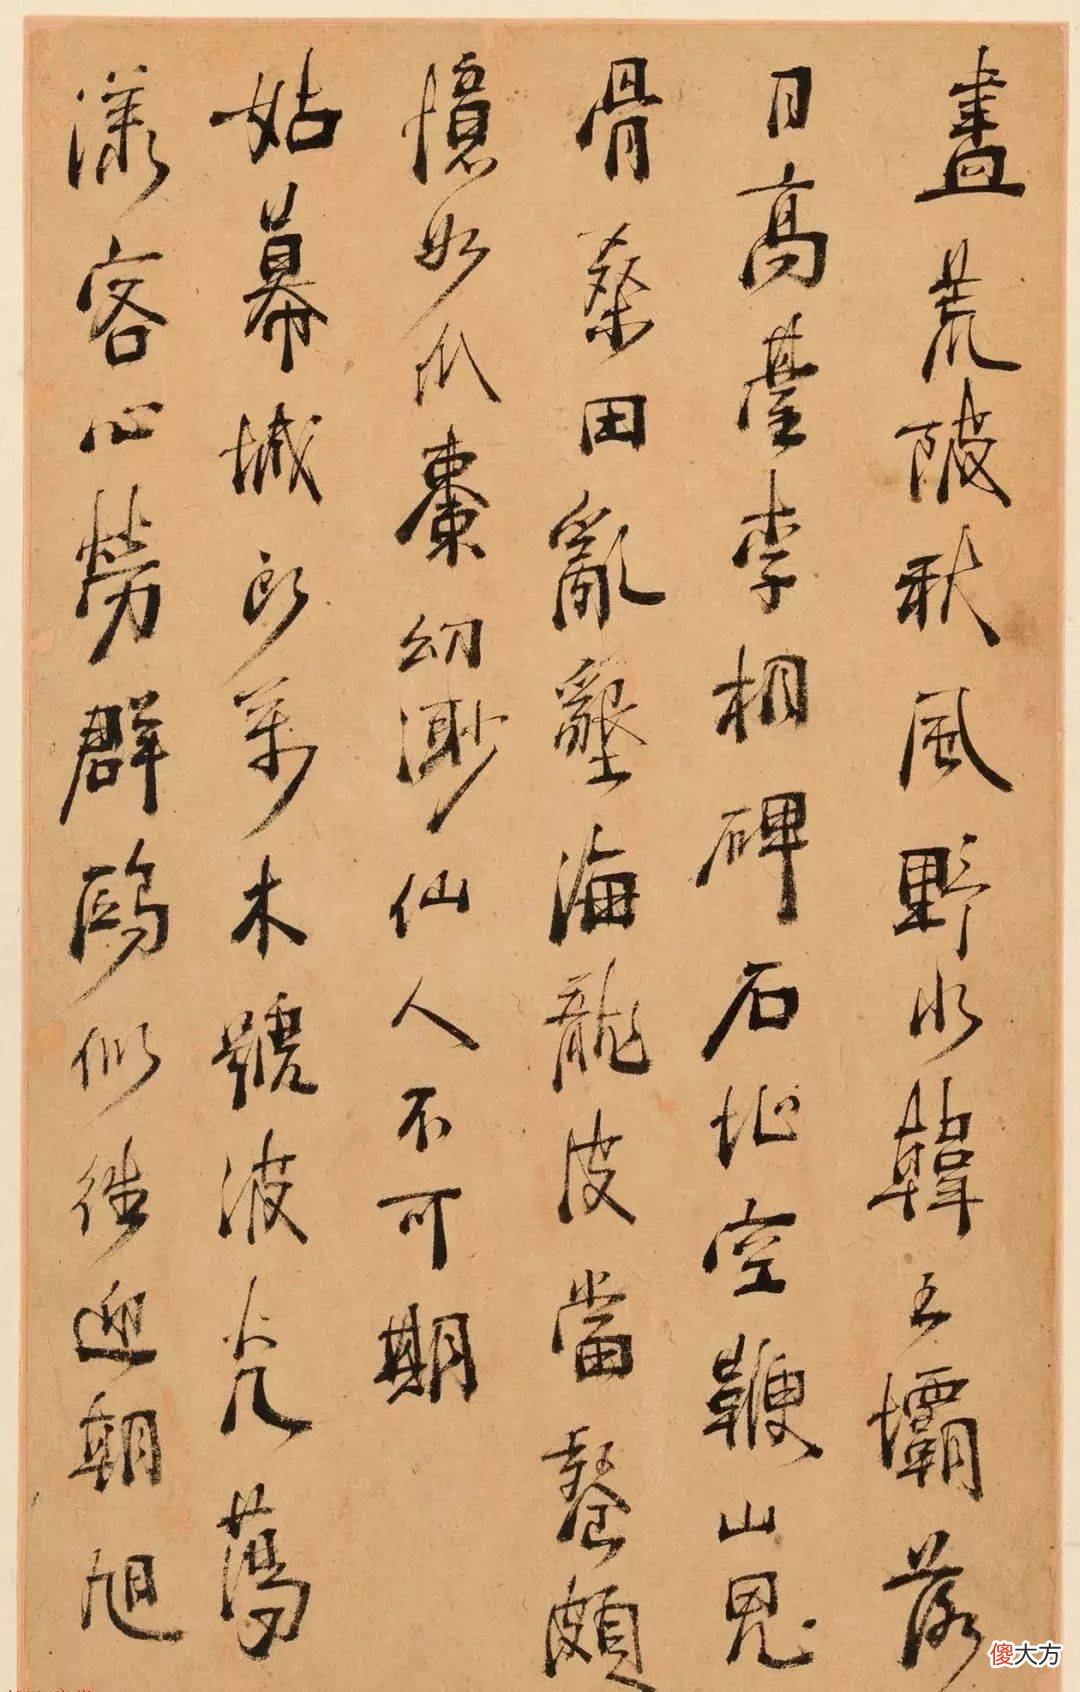 畫荒陂秋風野水韓王壩落
日高臺李相碑石圯空鞭山鬼
骨桑田亂墾海龍皮當壚頗
憶如瓜棗幼渺仙人不可期
姑幕城邊萬木號波光蕩
漾客心勞群鷗似從迎朝旭
傻大方